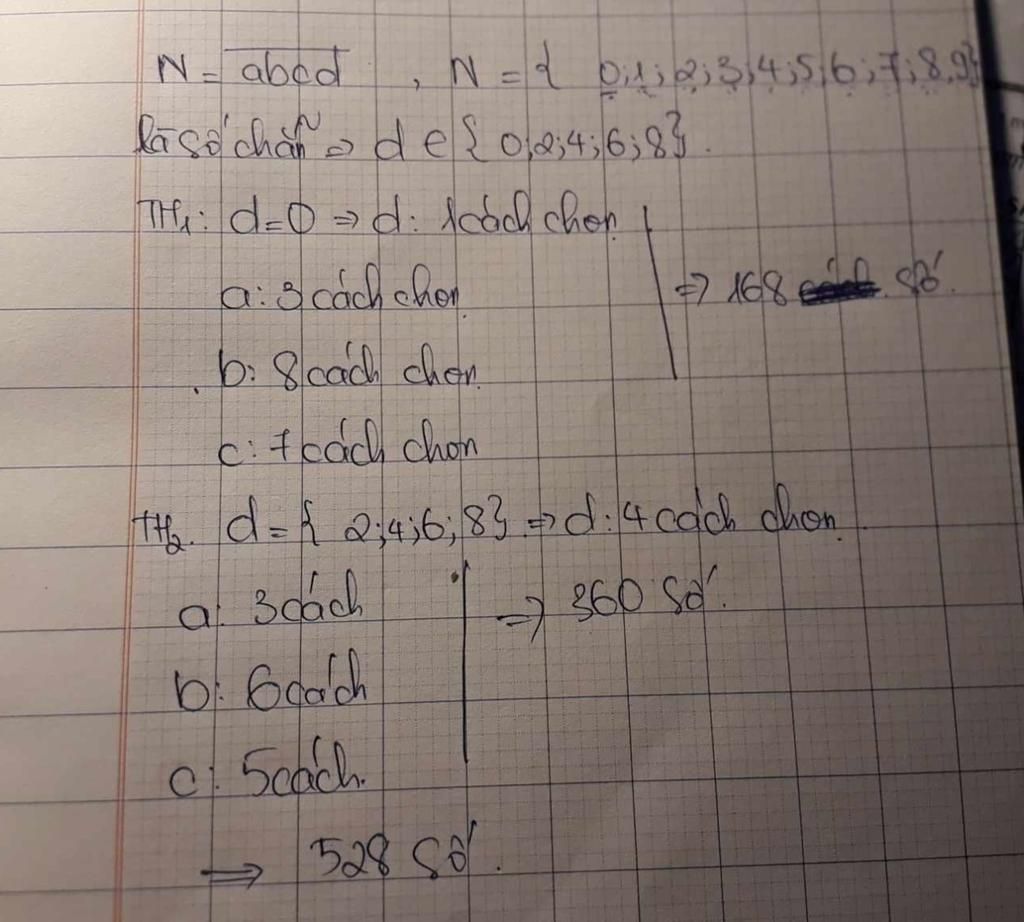 N = abcd , N = { 0;1;2;3;4;5;6;7;8,9}
là số chẵn => d ∈ { 0;2;4;6;8}.
TH1: d=0 => d: 1 cách chọn
a: 3 cách chọn
=> 168 số.
b: 8 cách chọn
c: 7 cách chọn
TH2. d={ 2;4;6;8} => d: 4 cách chọn.
a: 3 cách
=> 360 số.
b: 6 cách
c: 5 cách.
=> 528 số.